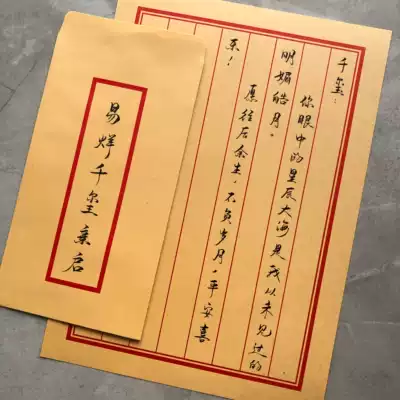 易烊千玺亲启
千玺：
你眼中的星辰大海是我从未见过的
明媚皓月。
愿往后余生，不负岁月，平安喜
乐！